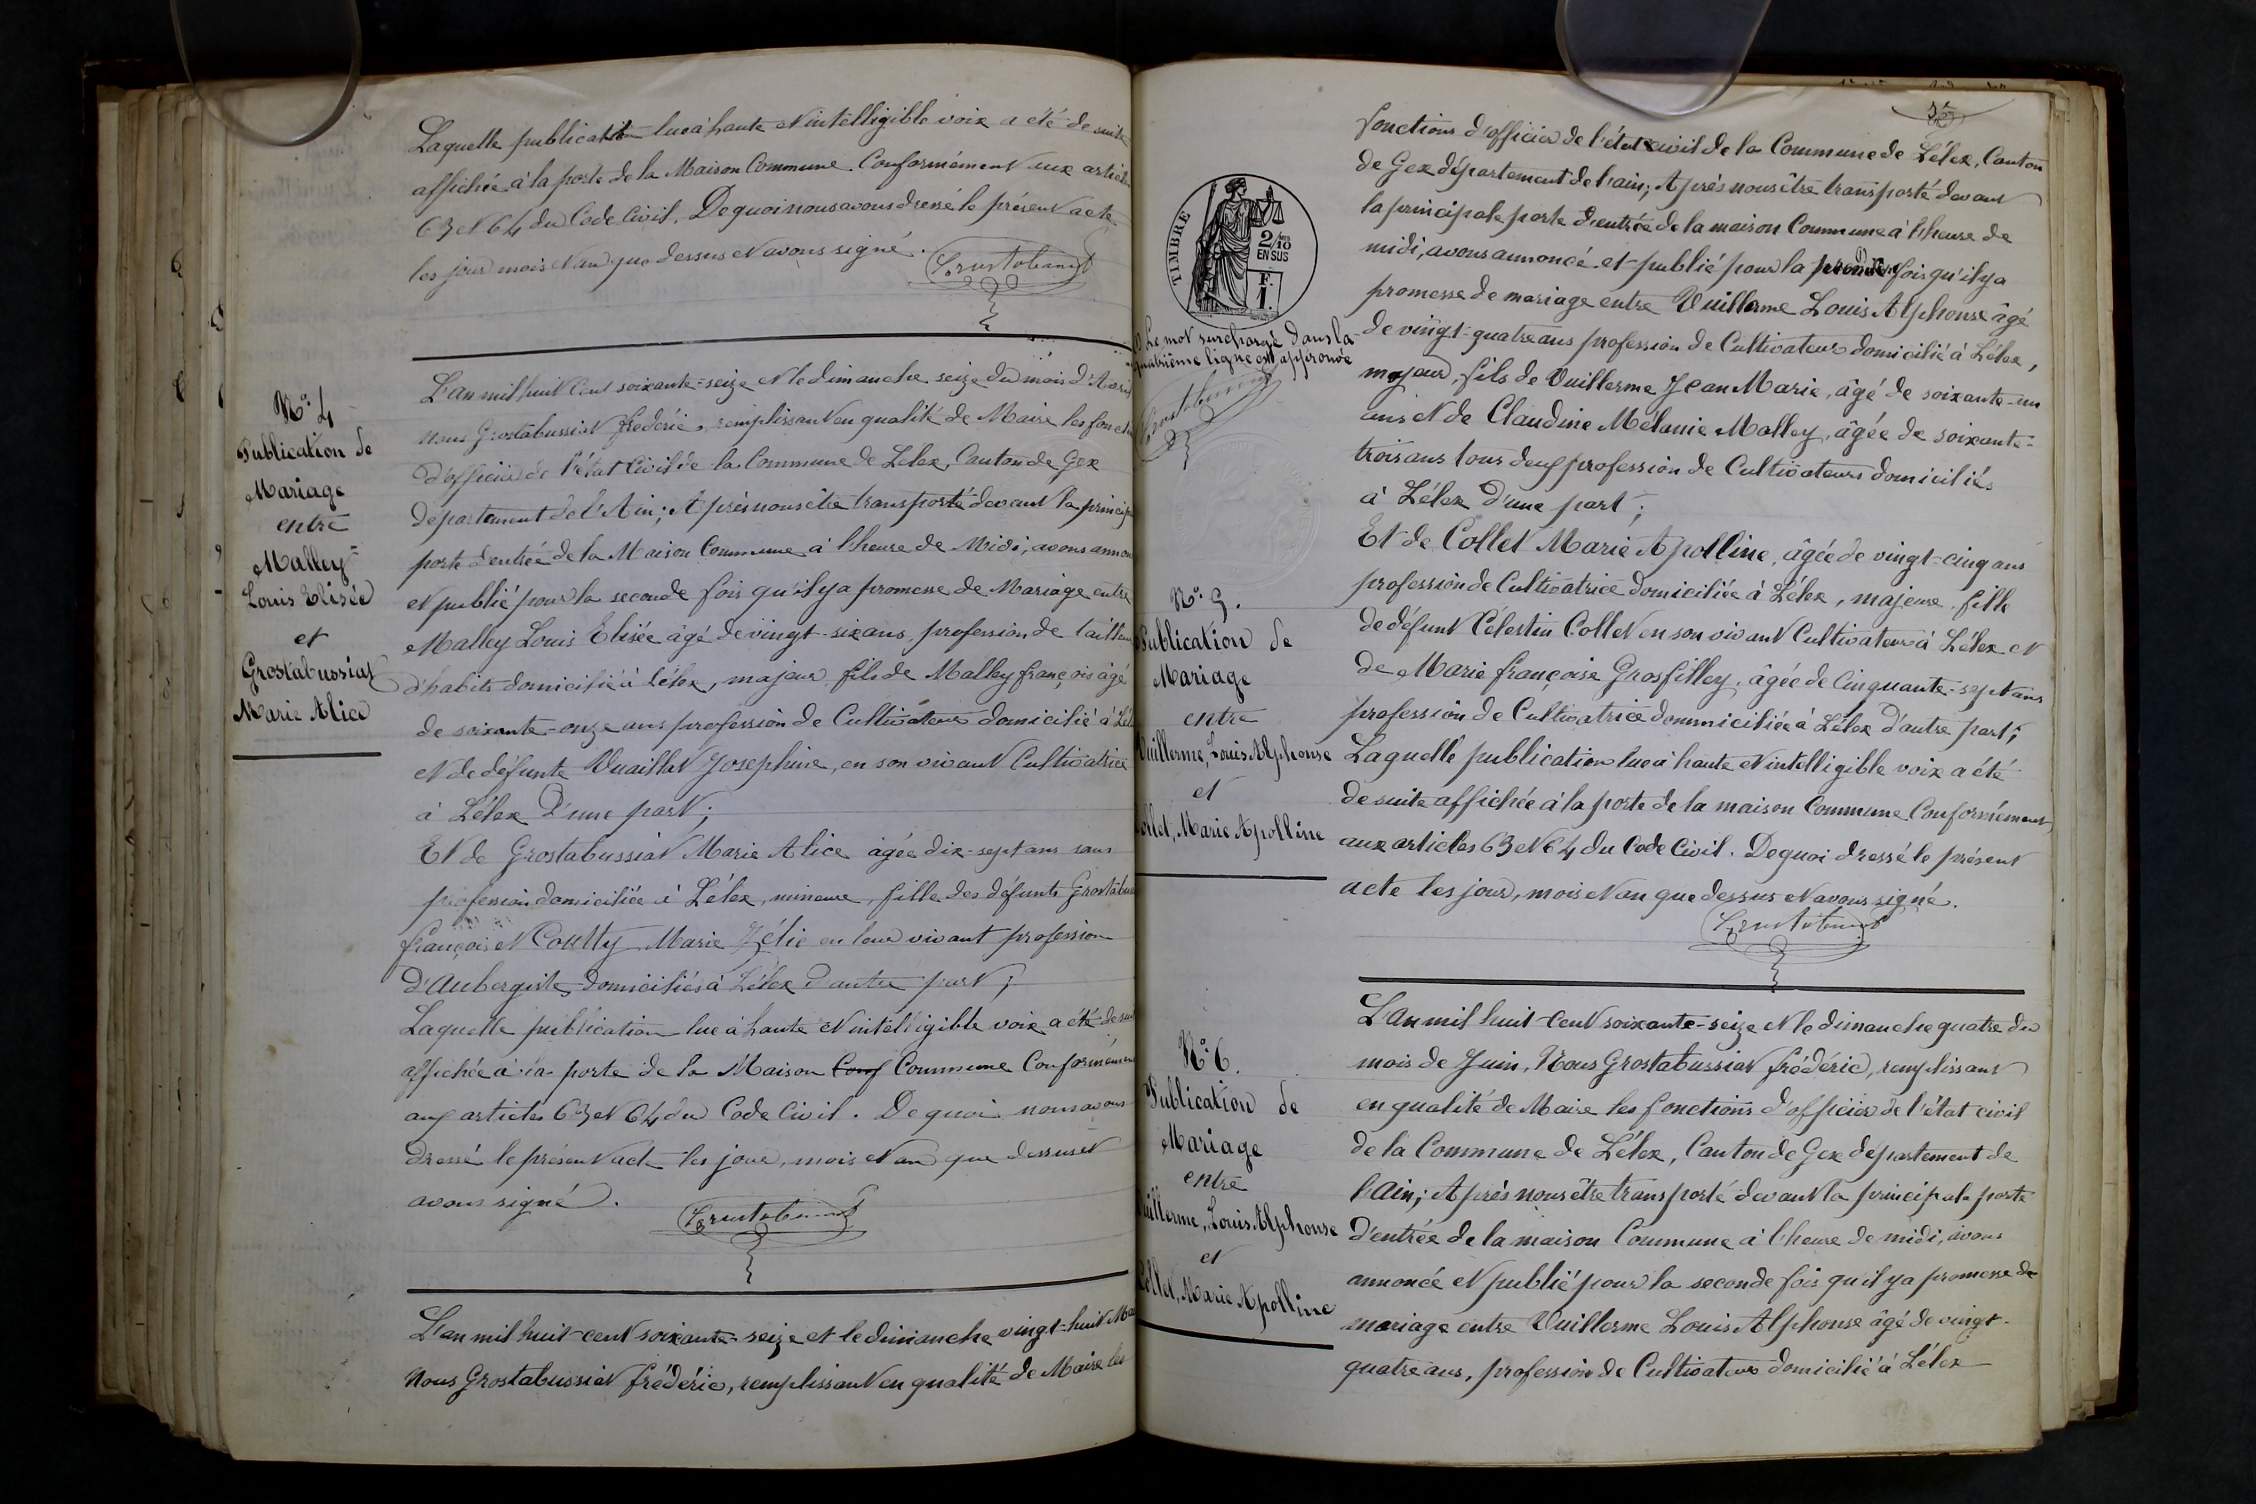 Laquelle publication lue à haute et intelligible voix a été de suite
affichée à la porte de la Maison Commune. Conformément aux articles
63 et 64 du Code Civil. De quoi nous avons dressé le présent acte
les jour mois et an que dessus et avons signé.
N° 4
Publication de
Mariage
entre
Malley
Louis Elisée
et
Grostabussiat
Marie Alice
L'an mil huit cent soixante-seize et le dimanche seize du mois d'Avril
nous Grostabussiat frédéric, remplissant en qualité de Maire les fonct
d'officier de l'état Civil de la Commune de Lélex, Canton de Gex
département de l'Ain; Après nous être transporté devant la princip
porte d'entrée de la Maison Commune à l'heure de Midi, avons annon
et publié pour la seconde fois qu'il y a promesse de Mariage entre
Malley Louis Elisée âgé de vingt-six ans, profession de tailleur
d'habits domicilié à Lélex, majeur, fils de Malley françois âgé
de soixante-onze ans profession de Cultivateur domicilié à Lél
et de défunte Vuaillat Josephine, en son vivant Cultivatrice
à Lélex D'une part;
Et de Grostabussiat Marie Alice âgée dix-sept ans sans
profession domiciliée à Lélex, mineure, fille des défunts Grostabu
françois et Coutty Marie Zélie en leur vivant profession
d'Aubergiste domiciliés à Lélex d'autre part;
Laquelle publication lue à haute et intelligible voix a été de sui
affichée à la porte de la Maison Conf Commune Conformémen
aux articles 63 et 64 du Code Civil. De quoi nous avons
dressé le présent acte les jour, mois et an que dessus et
avons signé.
L'an mil huit-cent soixante-seize et le dimanche vingt-huit Mai
Nous Grostabussiat frédéric, remplissant en qualité de Maire les
TIMBRE
2/10
EN SUS
F.
1.
Le mot surchargé dans la
quatrième ligne est approuvé
fonctions d'officier de l'état civil de la Commune de Lélex, Canton
de Gex département de l'ain; Après nous être transporté devant
la principale porte d'entrée de la maison Commune à l'heure de
midi, avons annoncé et publié pour la première fois qu'il y a
promesse de mariage entre Vuillerme Louis Alphonse âgé
de vingt-quatre ans profession de Cultivateur domicilié à Lélex,
majeur, fils de Vuillerme Jean Marie, âgé de soixante-un
ans et de Claudine Mélanie Malley, âgée de soixante-
trois ans tous deux profession de Cultivateurs domiciliés
à Lélex D'une part;
N° 5.
Publication de
Mariage
entre
Vuillerme, Louis Alphonse
et
Collet, Marie Apolline
Et de Collet Marie Apolline, âgée de vingt-cinq ans
profession de Cultivatrice domiciliée à Lélex, majeure, fille
de défunt Célestin Collet en son vivant Cultivateur à Lélex et
de Marie françoise Grosfilley, âgée de Cinquante-sept ans
profession de Cultivatrice dommiciliée à Lélex d'autre part;
Laquelle publication lue à haute et intelligible voix a été
de suite affichée à la porte de la maison Commune Conformément
aux articles 63 et 64 du Code Civil. De quoi dressé le présent
acte les jour, mois et an que dessus et avons signé.
N° 6.
Publication de
Mariage
entre
Vuillerme, Louis Alphonse
et
Collet, Marie Apolline
L'an mil huit-cent soixante-seize et le dimanche quatre du
mois de Juin, Nous Grostabussiat frédéric, remplissant
en qualité de Maire les fonctions d'officier de l'état civil
de la Commune de Lélex, Canton de Gex département de
l'Ain; Après nous être transporté devant la principale porte
d'entrée de la maison Commune à l'heure de midi, avons
annoncé et publié pour la seconde fois qu'il y a promesse de
mariage entre Vuillerme Louis Alphonse âgé de vingt-
quatre ans, profession de Cultivateur domicilié à Lélex